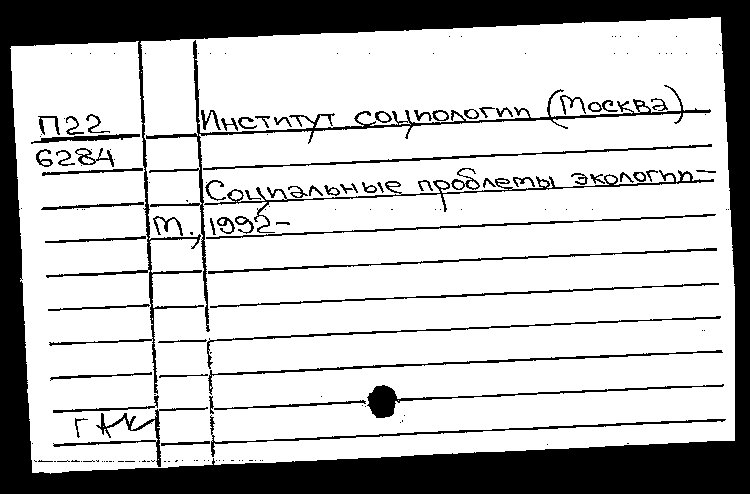 П22 Институт социологии (Москва).
6284
Социальные проблемы экологии=
М., 1992-
ГАК